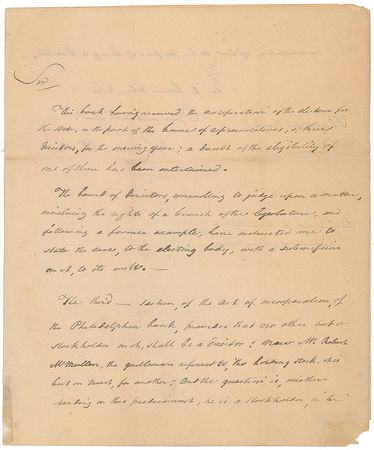 Sir,
This bank having received the notification of the election for
the state, on the part of the house of representatives, of three
Directors, for the ensuing year; a doubt of the eligibility of
one of them has been entertained.
The board of Directors, unwilling to judge upon a matter,
involving the rights of a branch of the legislature, and
following a former example, have instructed me to
state the case, to the electing body, with a submission
on it, to its will. —
The third — section, of the act of incorporation, of
the Philadelphia bank, provides that no other but a
stockholder in it, shall be a Director; now Mr Robert
McMullen, the gentleman referred to, tho holding stock, it is
but in trust, for another; And the question is, whether
standing in this predicament, he is a stockholder, in the